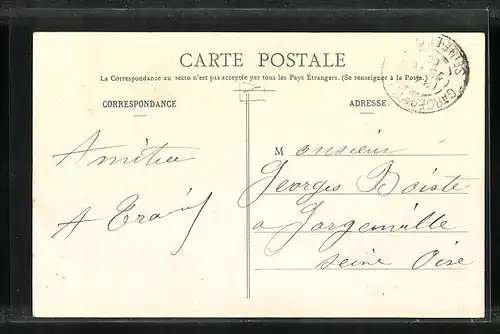 CARTE POSTALE
La Correspondance au recto n'est pas acceptée par tous les Pays Étrangers. (Se renseigner à la Poste.)
CORRESPONDANCE
ADRESSE
Monsieur
Georges Boiste
a Gargenville
Seine Oise
A